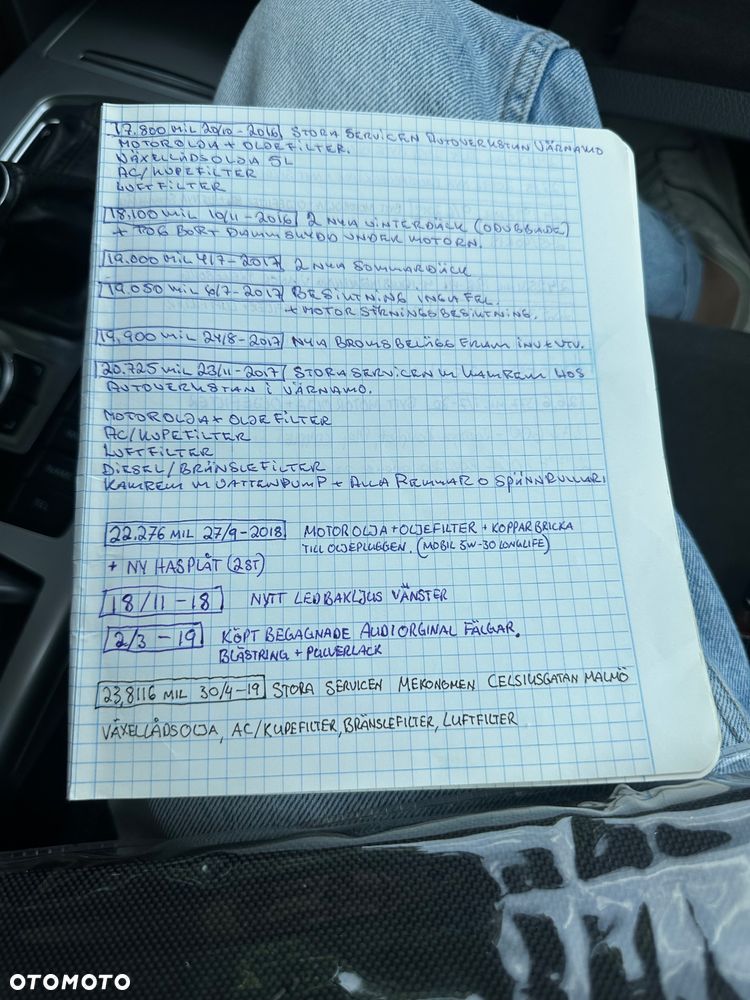 17.800 MIL 20/10-2016 STORA SERVICEN AUTOVERKSTAN VÄRNAMO
MOTOROLJA + OLJEFILTER.
VÄXELLÅDSOLJA 5L
AC/KUPEFILTER
LUFTFILTER
18.100 MIL 10/11-2016 2 NYA VINTERDÄCK (ODUBBADE)
+ TOG BORT DAMMSKYDD UNDER MOTORN.
19.000 MIL 4/7-2017 2 NYA SOMMARDÄCK
19.050 MIL 10/7-2017 BESIKTNING INGA FEL.
+ MOTOR STÄRNINGSBESIKTNING.
19.900 MIL 24/8-2017 NYA BROMSBELÄGG FRAM INV & UTV.
20.725 MIL 23/11-2017 STORA SERVICEN M KAMREM HOS
AUTOVERKSTAN I VÄRNAMO.
MOTOROLJA + OLJEFILTER
AC/KUPEFILTER
LUFTFILTER
DIESEL/BRÄNSLEFILTER
KAMREM M VATTENPUMP + ALLA REMMAR O SPÄNNRULLAR
22.276 MIL 27/9-2018 MOTOROLJA + OLJEFILTER + KOPPARBRICKA
TILL OLJEPLUGGEN. (MOBIL 5W-30 LONGLIFE)
+ NY HASPLÅT (2ST)
18/11-18 NYTT LED BAKLJUS VÄNSTER
2/3-19 KÖPT BEGAGNADE AUDI ORGINAL FÄLGAR.
BLÄSTRING + PULVERLACK
23,8116 MIL 30/4-19 STORA SERVICEN MEKONOMEN CELSIUSGATAN MALMÖ
VÄXELLÅDSOLJA, AC/KUPEFILTER, BRÄNSLEFILTER, LUFTFILTER
OTOMOTO